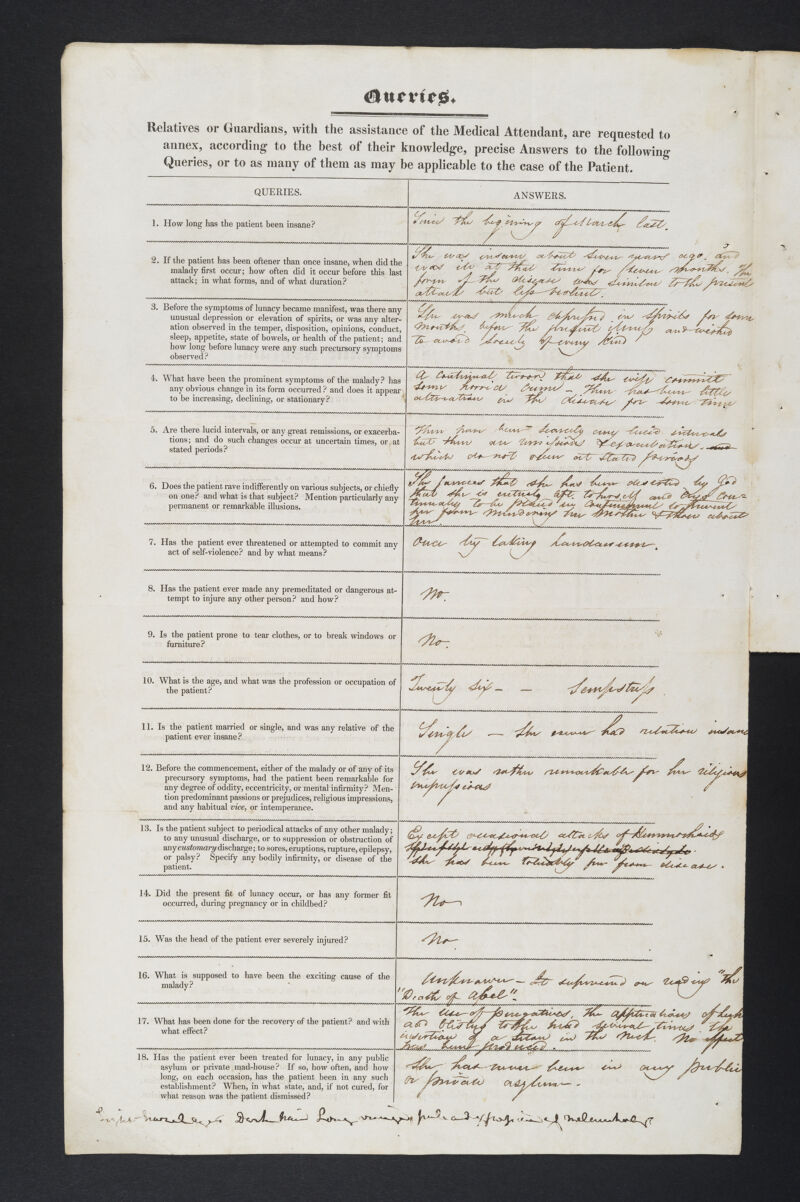 Queries.
Relatives or Guardians, with the assistance of the Medical Attendant, are requested to
annex, according to the best of their knowledge, precise Answers to the following
Queries, or to as many of them as may be applicable to the case of the Patient.
QUERIES.
ANSWERS.
1. How long has the patient been insane?
Since the begining of March last.
2. If the patient has been oftener than once insane, when did the
malady first occur; how often did it occur before this last
attack; in what forms, and of what duration?
She was insane about seven years ago. and
was ill at that time for seven months. The
form of the disease was similar to the present
attack but less violent.
3. Before the symptoms of lunacy became manifest, was there any
unusual depression or elevation of spirits, or was any alter-
ation observed in the temper, disposition, opinions, conduct,
sleep, appetite, state of bowels, or health of the patient; and
how long before lunacy were any such precursory symptoms
observed?
She was much depressed in spirits for some
months before the present illness and wished
to avoid society of every kind
4. What have been the prominent symptoms of the malady? has
any obvious change in its form occurred? and does it appear
to be increasing, declining, or stationary?
A continual terror that she will commit
some horrid crime - There has been little
alteration in the disease for some time
5. Are there lucid intervals, or any great remissions, or exacerba-
tions; and do such changes occur at uncertain times, or at
stated periods?
There have been scarcely any lucid intervals
but there are remissions & exacerbations. and
which do not occur at stated periods
6. Does the patient rave indifferently on various subjects, or chiefly
on one? and what is that subject? Mention particularly any
permanent or remarkable illusions.
She fancies that she has been deserted by God
that she is entirely left to herself and cries con=
tinually to be placed in confinement to prevent
her from murdering her mother & those about
her
7. Has the patient ever threatened or attempted to commit any
act of self-violence? and by what means?
Once by taking Laudanum.
8. Has the patient ever made any premeditated or dangerous at-
tempt to injure any other person? and how?
No.
9. Is the patient prone to tear clothes, or to break windows or
furniture?
No.
10. What is the age, and what was the profession or occupation of
the patient?
Twenty Six - - Sempstress
11. Is the patient married or single, and was any relative of the
patient ever insane?
Single - She never had relation insane
12. Before the commencement, either of the malady or of any of its
precursory symptoms, had the patient been remarkable for
any degree of oddity, eccentricity, or mental infirmity? Men-
tion predominant passions or prejudices, religious impressions,
and any habitual vice, or intemperance.
She was rather remarkable for her religious
impressions
13. Is the patient subject to periodical attacks of any other malady;
to any unusual discharge, or to suppression or obstruction of
any customary discharge; to sores, eruptions, rupture, epilepsy,
or palsy? Specify any bodily infirmity, or disease of the
patient.
Except occasional attacks of Hemorrhoids
She has been tolerably free from disease.
14. Did the present fit of lunacy occur, or has any former fit
occurred, during pregnancy or in childbed?
No
15. Was the head of the patient ever severely injured?
No.
16. What is supposed to have been the exciting cause of the
malady?
Unknown - It supervened on reading "the
"Death of Abel".
17. What has been done for the recovery of the patient? and with
what effect?
The use of purgatives, the applications of
and blisters to the head several times the
insertion of a seton in the neck. No effect
has been produced.
18. Has the patient ever been treated for lunacy, in any public
asylum or private mad-house? If so, how often, and how
long, on each occasion, has the patient been in any such
establishment? When, in what state, and, if not cured, for
what reason was the patient dismissed?
She has never been in any public
or private asylum.
hazel eyes Dark hair Long and expression of melancholy